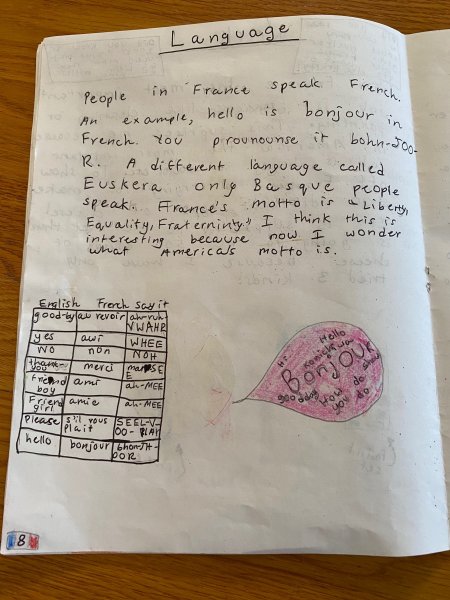 Language
People in France speak French.
An example, hello is bonjour in
French. You prounounse it bohn-JOO-
R. A different language called
Euskera only Basque people
speak. France's motto is "Liberty,
Equality, Fraterninty." I think this is
interesting because now I wonder
what America's motto is.
English French Say it
good-by au revoir ah-ruh VWAHR
yes awi WHEE
NO non NOH
thank-you merci
Friend boy ami ah-MEE
Friend girl amie ah-MEE
Please s'il vous plait SEEL-V-OO-PLAY
hello bonjour bhon-JH-OOR
Hello
Hi
Bonjour
good day
how do
you do
8